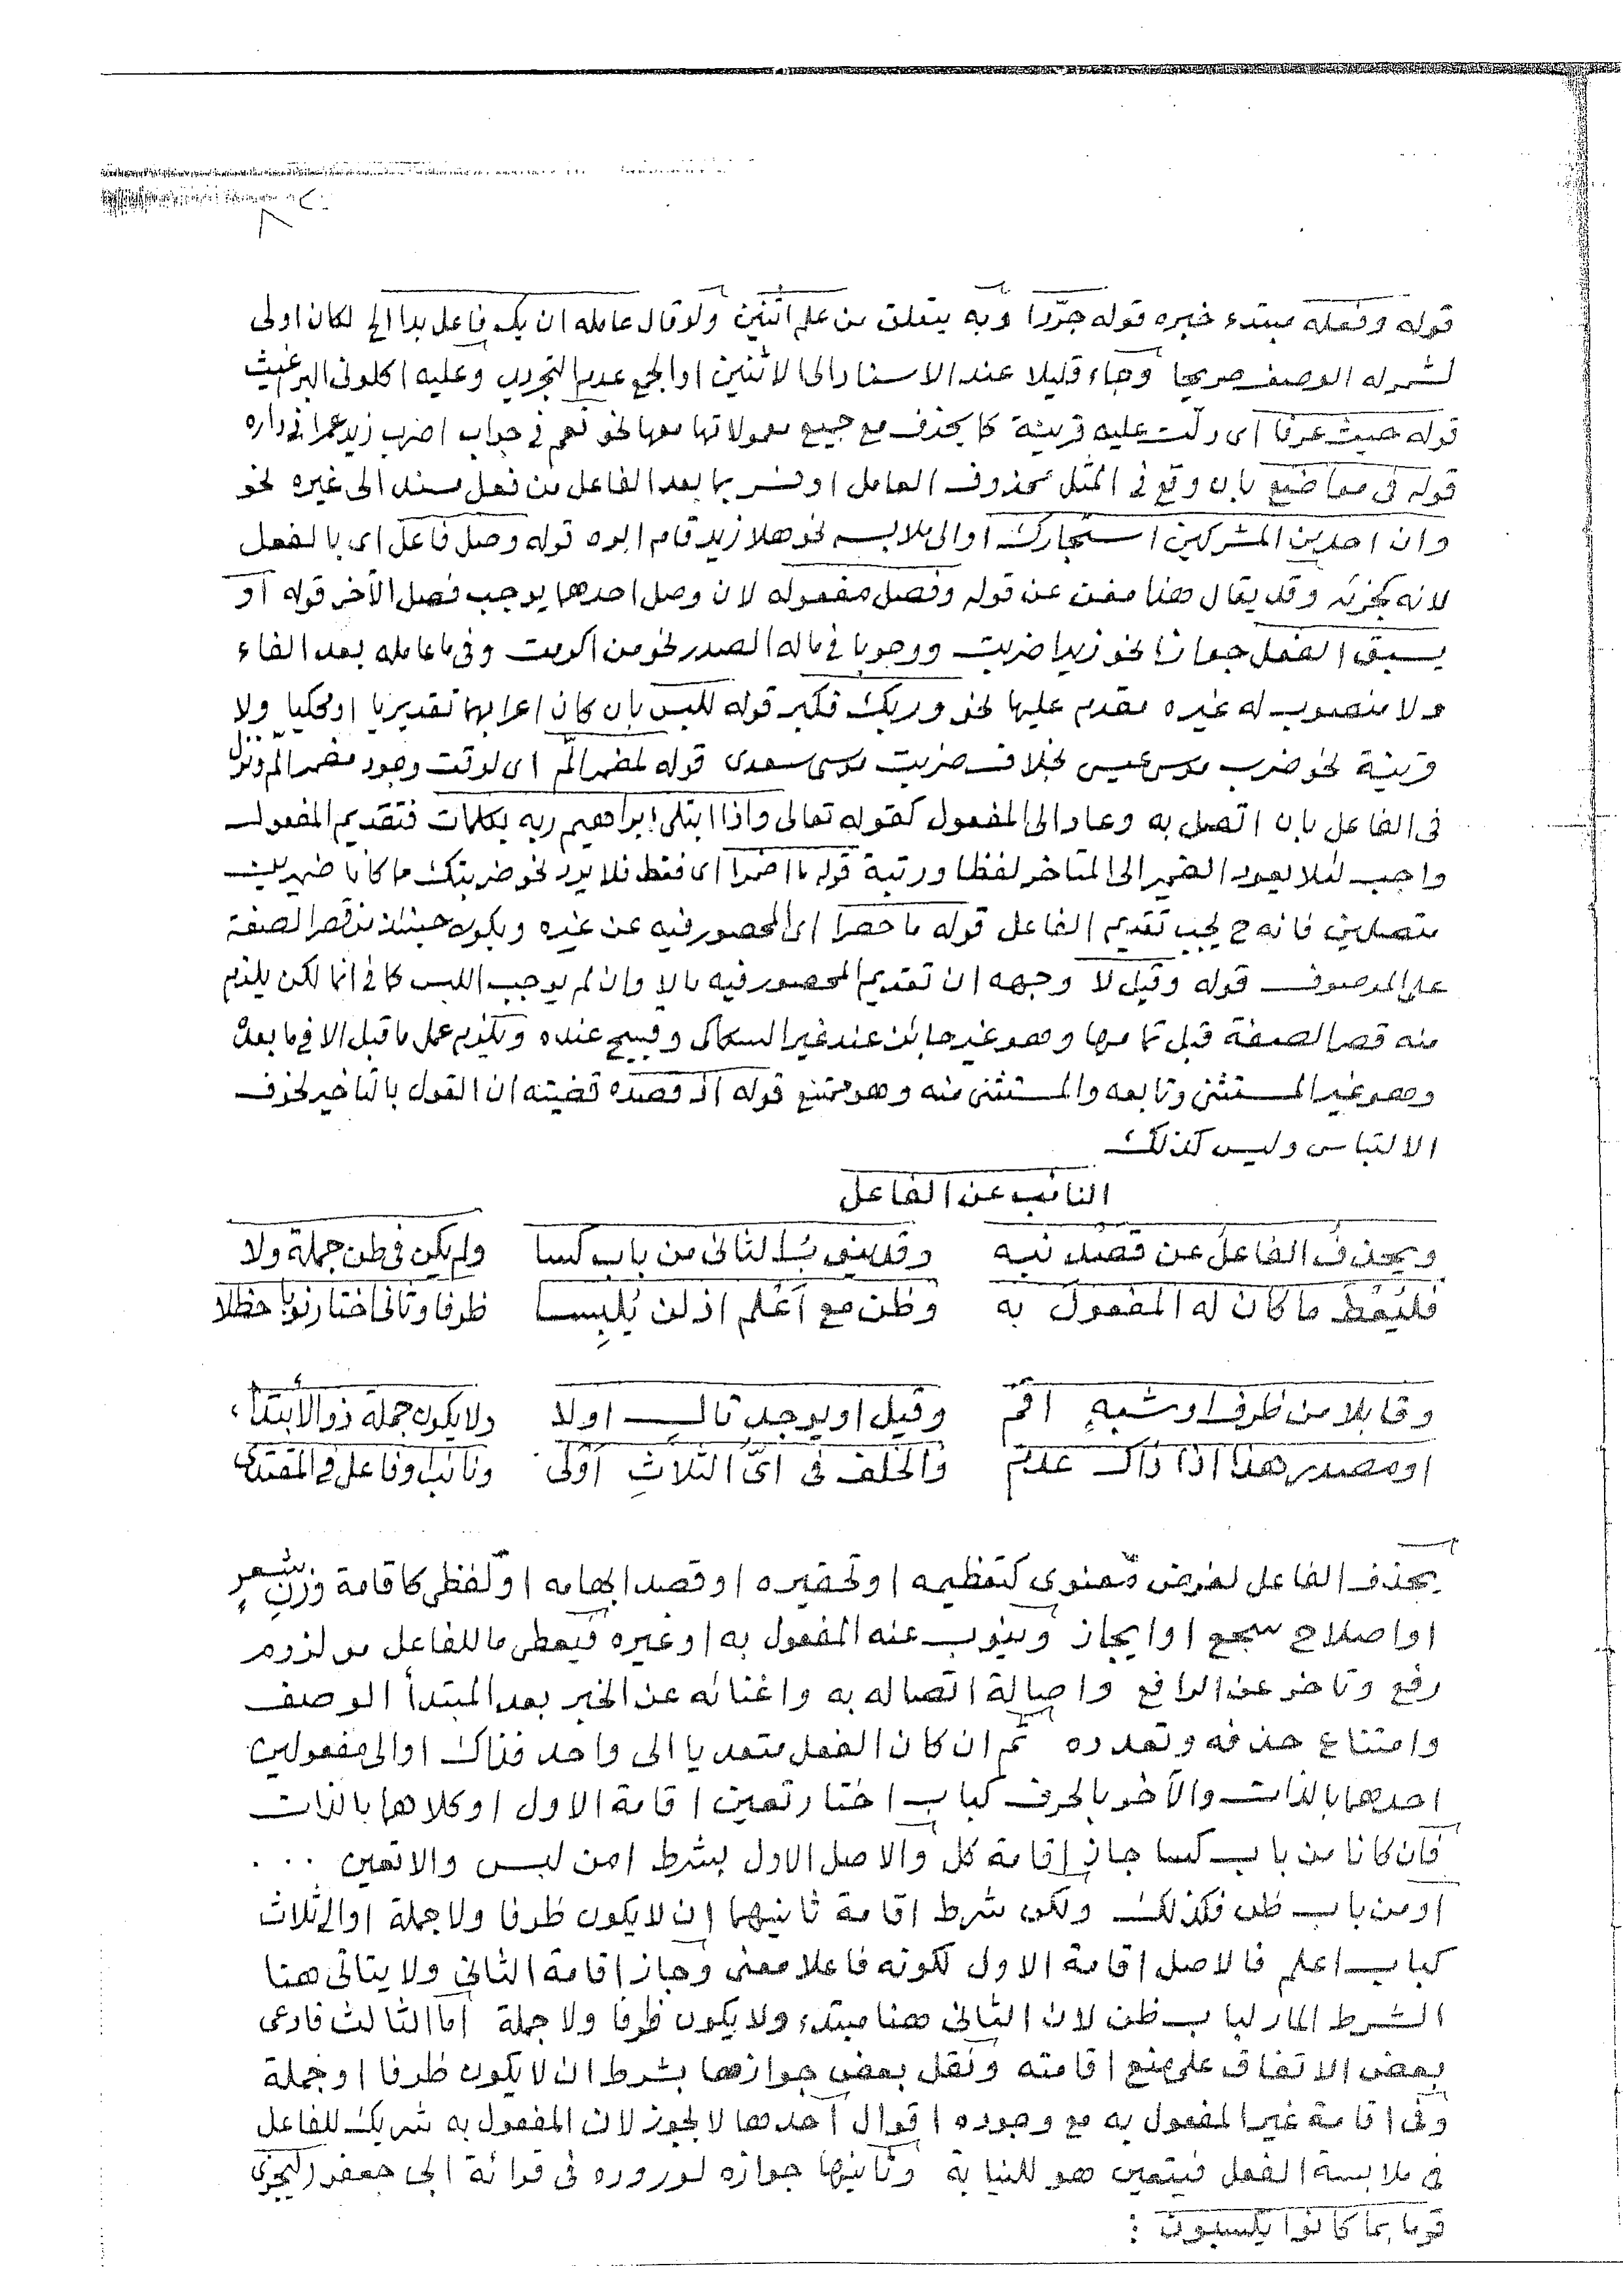 قوله وفعله مبتدء خبره قوله جرّدا وبه يتعلق من علم اثنين ولو قال عامله ان يك فاعل بدا الخ لكان اولى
لشموله الوصف صريحا وجاء قليلا عند الاسناد الى الاثنين او الجمع عدم التجريد وعليه اكلونى البراغيث
قوله حيث عرفا اى دلت عليه قرينة كما يحذف مع جميع معمولاتها معها نحو نعم فى جواب اضرب زيد عمرا فى داره
قوله فى مواضع بان وقع فى المثل محذوف العامل او فسر بما بعد الفاعل من فعل مسند الى غيره نحو
وان احد من المشركين استجارك او الى ملابسه نحو هلا زيد قام ابوه قوله وصل فاعل اى بالفعل
لانه كجزئه وقد يقال هذا مغن عن قوله وفصل مفعوله لان وصل احدهما يوجب فصل الآخر قوله او
يسبق الفعل جوازا نحو زيدا ضربت ووجوبا فى ما له الصدر نحو من اكرمت وفى ما عامله بعد الفاء
ولا منصوب له غيره مقدم عليها نحو وربك فكبر قوله للبس بان كان اعرابهما تقديريا او محكيا ولا
قرينة نحو ضرب موسى عيسى بخلاف ضربت موسى سعدى قوله لمضمر الّم اى لوقت وجود مضمر الّم ونزل
فى الفاعل بان اتصل به وعاد الى المفعول كقوله تعالى واذا ابتلى ابراهيم ربه بكلمات فتقديم المفعول
واجب لئلا يعود الضمير الى المتاخر لفظا ورتبة قوله ما اضمرا اى فقط فلا يرد نحو ضربتك ما كانا ضميرين
متصلين فانه ح يجب تقديم الفاعل قوله ما حصرا اى المحصور فيه عن غيره ويكون حينئذ من قصر الصفة
على الموصوف قوله وقيل لا وجهه ان تقديم المحصور فيه بالا وان لم يوجب اللبس كما فى انما لكن يلزم
منه قصر الصفة قبل تمامها وهو غير جائز عند غير السكاكى وقبيح عنده ويلزم عمل ما قبل الا فى ما بعدها
وهو غير المستثنى وتابعه والمستثنى منه وهو ممتنع قوله اذ قصده قضيته ان القول بالتاخير لخوف
الالتباس وليس كذلك
النائب عن الفاعل
ويحذف الفاعل عن قصد نبه وقد ينوب الثانى من باب كسا ولم يكن فى ظن جملة ولا
فليعط ما كان له المفعول به وظن مع اعلم اذ لن يلبسا ظرفا وثانى اختار نوبا حظلا
وقابلا من ظرف او شبه اقم وقيل او يوجد تال اولا ولا يكون جملة ذو الابتدا
او مصدر هذا اذا ذاك عدم والخلف فى اىّ الثلاث اولى ونائبا وفاعل فى المقتدى
يحذف الفاعل لغرض معنوى كتعظيمه او تحقيره او قصد ابهامه او لفظى كاقامة وزن شعر
او اصلاح سجع او ايجاز وينوب عنه المفعول به او غيره فيعطى ما للفاعل من لزوم
رفع وتاخر عن الرافع واصالة اتصاله به واغنائه عن الخبر بعد المبتدأ الوصف
وامتناع حذفه وتعدده ثم ان كان الفعل متعديا الى واحد فذاك او الى مفعولين
احدهما بالذات والآخر بالحرف كباب اختار تعين اقامة الاول او كلاهما بالذات
فان كانا من باب كسا جاز اقامة كل والاصل الاول بشرط امن لبس والا تعين ...
او من باب ظن فكذلك ولكن شرط اقامة ثانيهما ان لا يكون ظرفا ولا جملة او الى ثلاث
كباب اعلم فالاصل اقامة الاول لكونه فاعلا معنى وجاز اقامة الثانى ولا يتاتى هنا
الشرط المار لباب ظن لان الثانى هنا مبتدء ولا يكون ظرفا ولا جملة اما الثالث فادعى
بعض الاتفاق على منع اقامته ونقل بعض جوازها بشرط ان لا يكون ظرفا او جملة
وفى اقامة غير المفعول به مع وجوده اقوال احدها لا يجوز لان المفعول به شريك للفاعل
فى ملابسة الفعل فيتعين هو للنيابة وثانيها جوازه لوروده فى قرائة ابى جعفر ليجزى
قوما بما كانوا يكسبون :